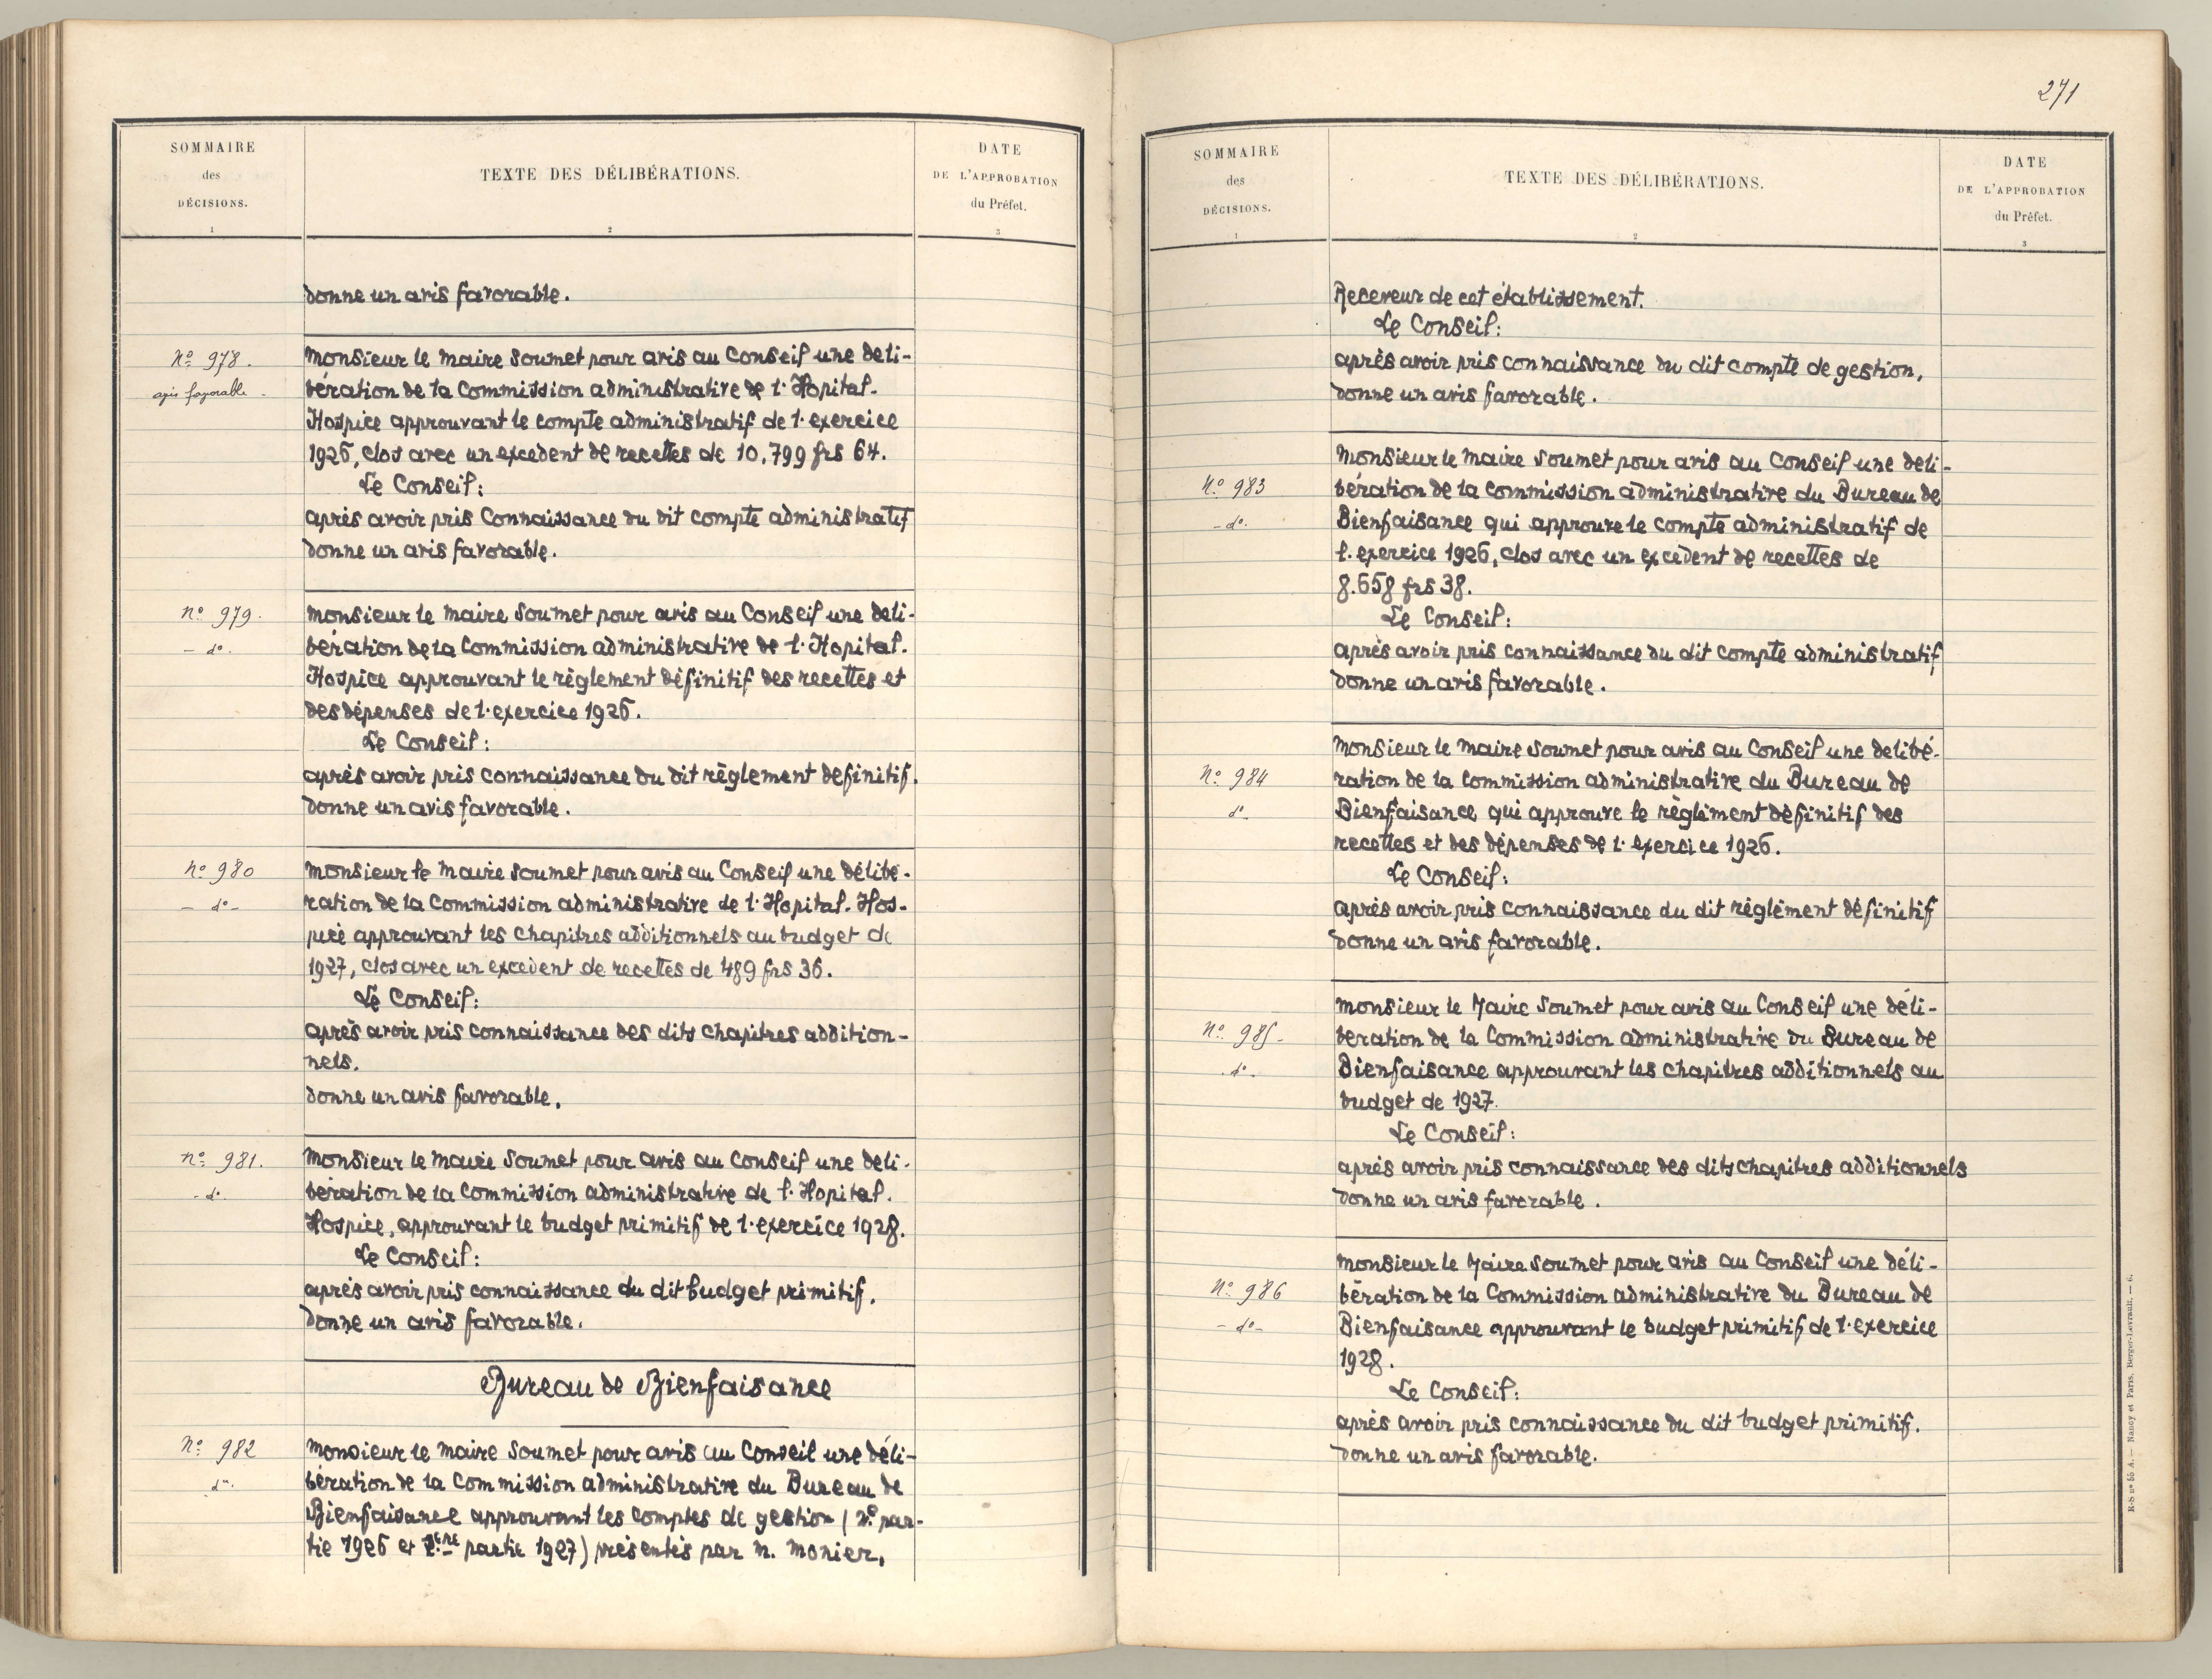 SOMMAIRE
des
DÉCISIONS.
1
TEXTE DES DÉLIBÉRATIONS.
2
DATE
DE L'APPROBATION
du Préfet.
3
donne un avis favorable.
Nº 978.
avis favorable.
Monsieur le Maire soumet pour avis au Conseil une déli-
bération de la Commission administrative de l'Hopital-
Hospice approuvant le compte administratif de l'exercice
1926, clos avec un excédent de recettes de 10.799 frs 64.
Le Conseil:
après avoir pris Connaissance du dit compte administratif
donne un avis favorable.
Nº 979.
- dº -
Monsieur le Maire soumet pour avis au Conseil une déli-
bération de la Commission administrative de l'Hopital-
Hospice approuvant le règlement définitif des recettes et
des dépenses de l'exercice 1926.
Le Conseil:
après avoir pris connaissance du dit règlement définitif.
donne un avis favorable.
Nº 980
- dº -
Monsieur le Maire soumet pour avis au Conseil une délibé-
ration de la Commission administrative de l'Hopital-Hos-
pice approuvant les chapitres additionnels au budget de
1927, clos avec un excédent de recettes de 489 frs 36.
Le Conseil:
après avoir pris connaissance des dits chapitres addition-
nels.
donne un avis favorable.
Nº 981.
- dº -
Monsieur le Maire soumet pour avis au Conseil une déli-
bération de la Commission administrative de l'Hopital-
Hospice, approuvant le budget primitif de l'exercice 1928.
Le Conseil:
après avoir pris connaissance du dit budget primitif.
donne un avis favorable.
Bureau de Bienfaisance
Nº 982
dº.
Monsieur le Maire soumet pour avis au Conseil une déli-
bération de la Commission administrative du Bureau de
Bienfaisance approuvant les comptes de gestion ( 2º par-
tie 1926 et partie 1927) présentés par M. Monier,
271
SOMMAIRE
des
DÉCISIONS.
1
TEXTE DES DÉLIBÉRATIONS.
2
DATE
DE L'APPROBATION
du Préfet.
3
Receveur de cet établissement.
Le Conseil:
après avoir pris connaissance du dit compte de gestion,
donne un avis favorable.
Nº 983
- dº -
Monsieur le Maire soumet pour avis au Conseil une déli-
bération de la Commission administrative du Bureau de
Bienfaisance qui approuve le compte administratif de
l'exercice 1926, clos avec un excédent de recettes de
8.658 frs 38.
Le Conseil:
après avoir pris connaissance du dit compte administratif
donne un avis favorable.
Nº 984
dº -
Monsieur le Maire soumet pour avis au Conseil une délibé-
ration de la Commission administrative du Bureau de
Bienfaisance qui approuve le règlement définitif des
recettes et des dépenses de l'exercice 1926.
Le Conseil:
après avoir pris connaissance du dit règlement définitif
donne un avis favorable.
Nº 985 -
- dº -
Monsieur le Maire soumet pour avis au Conseil une déli-
bération de la Commission administrative du Bureau de
Bienfaisance approuvant les chapitres additionnels au
budget de 1927.
Le Conseil:
après avoir pris connaissance des dits chapitres additionnels
donne un avis favorable.
Nº 986
- dº -
Monsieur le Maire soumet pour avis au Conseil une déli-
bération de la Commission administrative du Bureau de
Bienfaisance approuvant le budget primitif de l'exercice
1928.
Le Conseil:
après avoir pris connaissance du dit budget primitif.
donne un avis favorable.
R-S nº 55 A. — Nancy et Paris, Berger-Levrault. — 6.